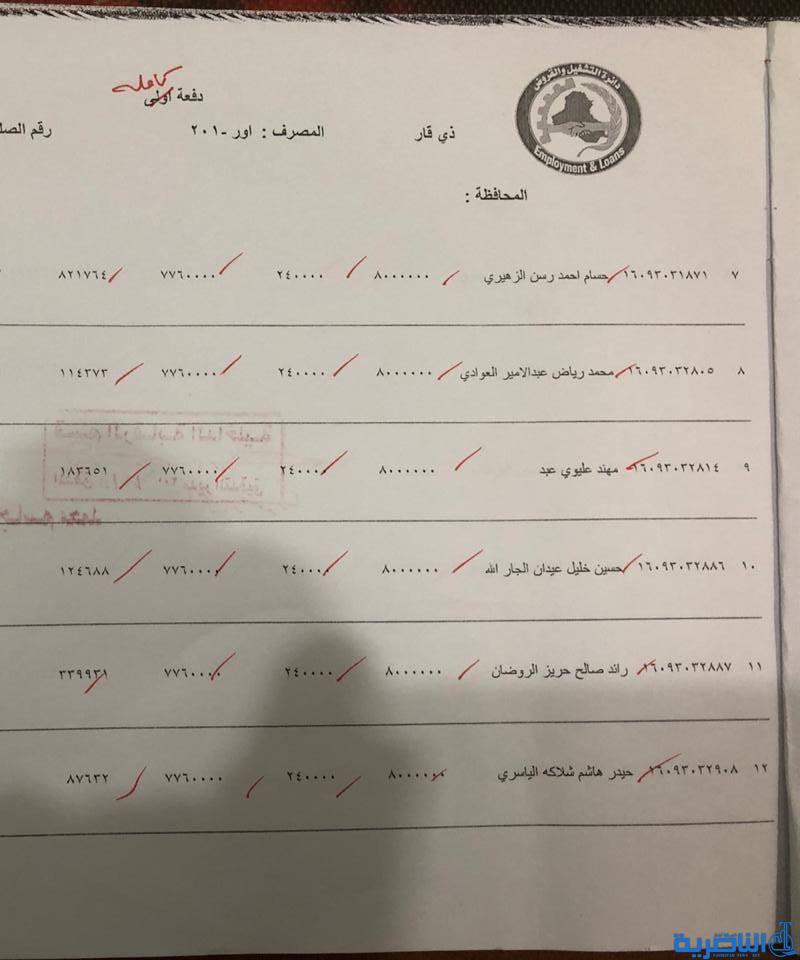 كاملة
دفعة اولى
دائرة التشغيل والقروض
Employment & Loans
ذي قار المصرف : اور -٢٠١ رقم الصك
المحافظة :
٧ ١٦٠٩٣٠٣١٨٧١ حسام احمد رسن الزهيري ٨٠٠٠٠٠٠ ٢٤٠٠٠٠ ٧٧٦٠٠٠٠ ٨٢١٧٦٤
٨ ١٦٠٩٣٠٣٢٨٠٥ محمد رياض عبدالامير العوادي ٨٠٠٠٠٠٠ ٢٤٠٠٠٠ ٧٧٦٠٠٠٠ ١١٤٣٧٣
٩ ١٦٠٩٣٠٣٢٨١٤ مهند عليوي عبد ٨٠٠٠٠٠٠ ٢٤٠٠٠٠ ٧٧٦٠٠٠٠ ١٨٣٦٥١
١٠ ١٦٠٩٣٠٣٢٨٨٦ حسين خليل عيدان الجار الله ٨٠٠٠٠٠٠ ٢٤٠٠٠٠ ٧٧٦٠٠٠٠ ١٢٤٦٨٨
١١ ١٦٠٩٣٠٣٢٨٨٧ رائد صالح حريز الروضان ٨٠٠٠٠٠٠ ٢٤٠٠٠٠ ٧٧٦٠٠٠٠ ٣٣٩٩٣١
١٢ ١٦٠٩٣٠٣٢٩٠٨ حيدر هاشم شلاكه الياسري ٨٠٠٠٠٠٠ ٢٤٠٠٠٠ ٧٧٦٠٠٠٠ ٨٧٦٣٢
الناصرية